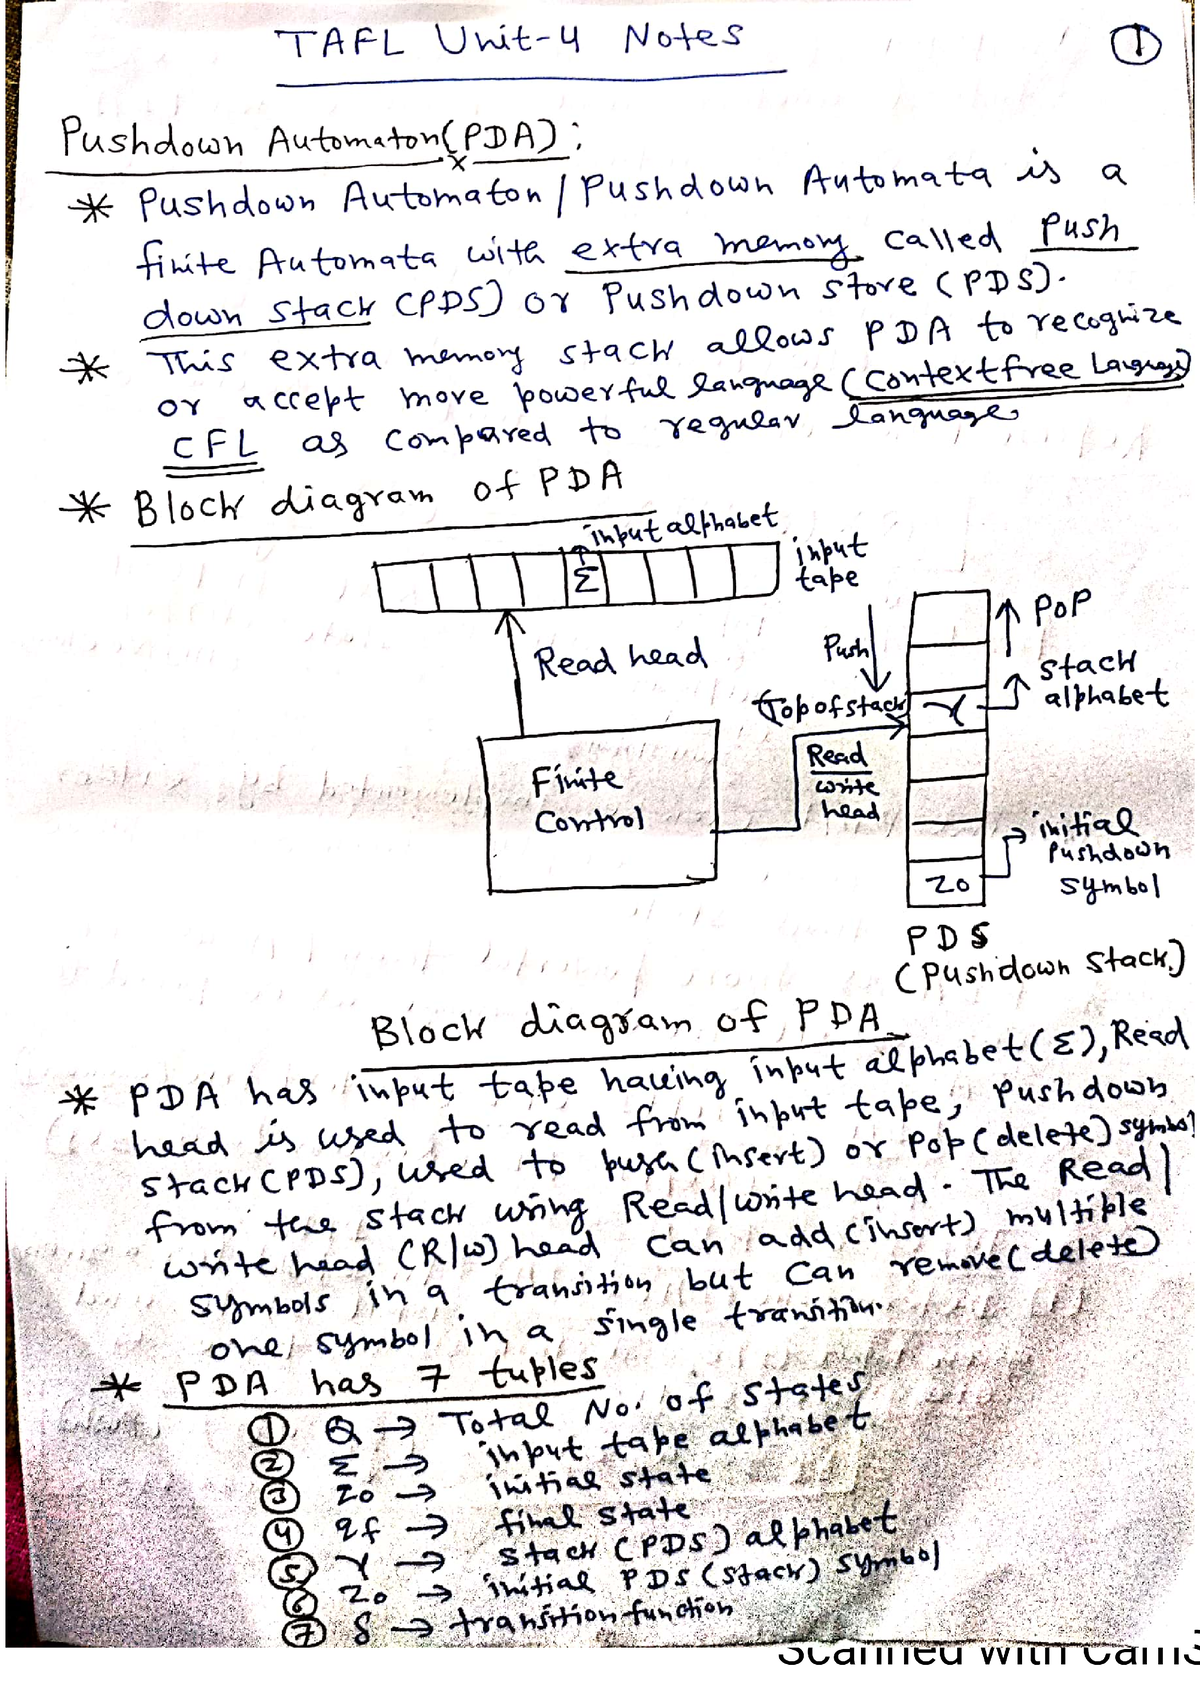 TAFL Unit-4 Notes
1
Pushdown Automaton(PDA):
* Pushdown Automaton/Pushdown Automata is a
finite Automata with extra memory called Push
down stack (PDS) or Pushdown store (PDS).
* This extra memory stack allows PDA to recognize
or accept more powerful language (Contextfree Language)
CFL as compared to regular language
* Block diagram of PDA
input alphabet
Σ
input
tape
Read head
Push
POP
Top of stack
γ
stack
alphabet
Finite
Control
Read
write
head
initial
Pushdown
symbol
Z0
PDS
(Pushdown Stack)
Block diagram of PDA
* PDA has input tape having input alphabet(Σ), Read
head is used to read from input tape, Pushdown
stack (PDS), used to push (insert) or Pop (delete) symbol
from the stack using Read/write head. The Read/
write head (R/W) head can add (insert) multiple
symbols in a transition but can remove (delete)
one symbol in a single transition.
* PDA has 7 tuples
1 Q → Total No. of states
2 Σ → input tape alphabet
3 Z0 → initial state
4 qf → final state
5 γ → stack (PDS) alphabet
6 Z0 → initial PDS (stack) symbol
7 δ → transition function
Scanned with CamS